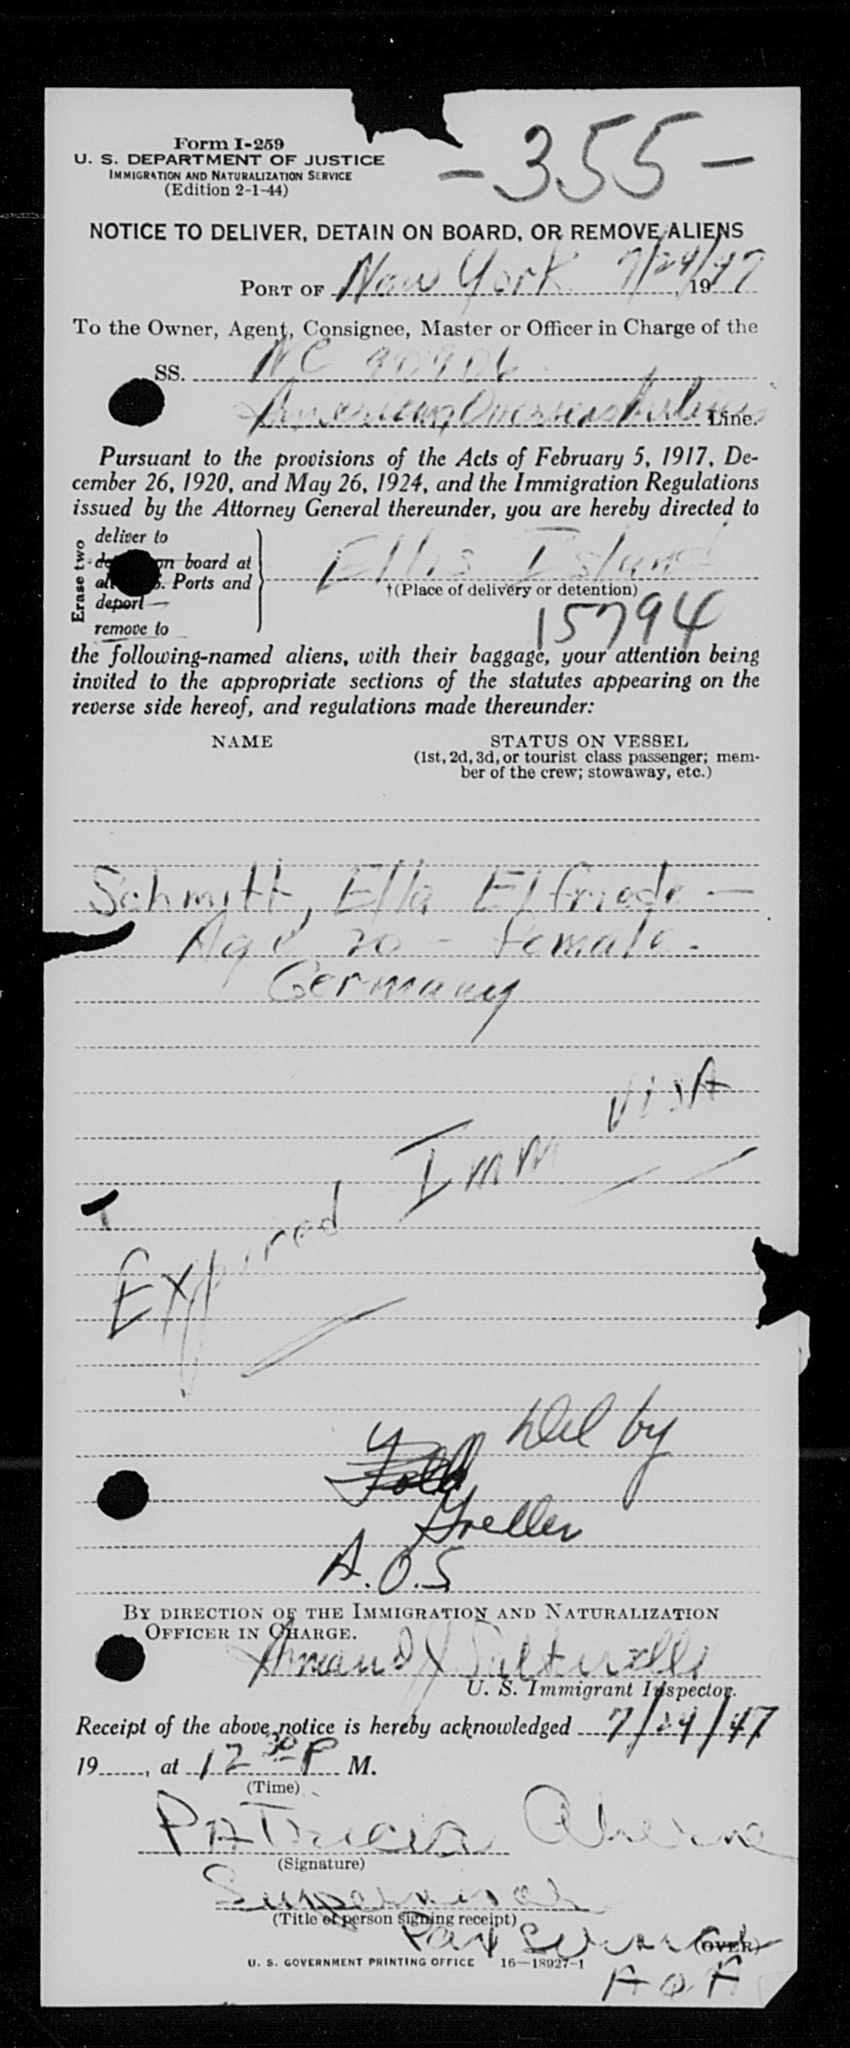 Form I-259
U. S. DEPARTMENT OF JUSTICE
IMMIGRATION AND NATURALIZATION SERVICE
(Edition 2-1-44)
- 355 -
NOTICE TO DELIVER, DETAIN ON BOARD, OR REMOVE ALIENS
PORT OF New York 7/24/47, 19
To the Owner, Agent, Consignee, Master or Officer in Charge of the
SS. NC 90906
American Overseas Airlines Line.
Pursuant to the provisions of the Acts of February 5, 1917, De-
cember 26, 1920, and May 26, 1924, and the Immigration Regulations
issued by the Attorney General thereunder, you are hereby directed to
Erase two
deliver to
on board at
Ports and
deport
remove to
Ellis Island
†(Place of delivery or detention)
15794
the following-named aliens, with their baggage, your attention being
invited to the appropriate sections of the statutes appearing on the
reverse side hereof, and regulations made thereunder:
NAME
STATUS ON VESSEL
(1st, 2d, 3d, or tourist class passenger; mem-
ber of the crew; stowaway, etc.)
Schmitt, Ella Elfriede —
Age 20 - Female.
Germany
Expired Imm Visa
Del by
Greller
A.O.S
BY DIRECTION OF THE IMMIGRATION AND NATURALIZATION
OFFICER IN CHARGE.
Armand J.
U. S. Immigrant Inspector.
Receipt of the above notice is hereby acknowledged 7/24/47
19, at 12 30 P M.
(Time)
Patricia Aherne
(Signature)
Supervisor
(Title of person signing receipt)
Pax Service
(OVER)
A O A
U. S. GOVERNMENT PRINTING OFFICE 16—18927-1